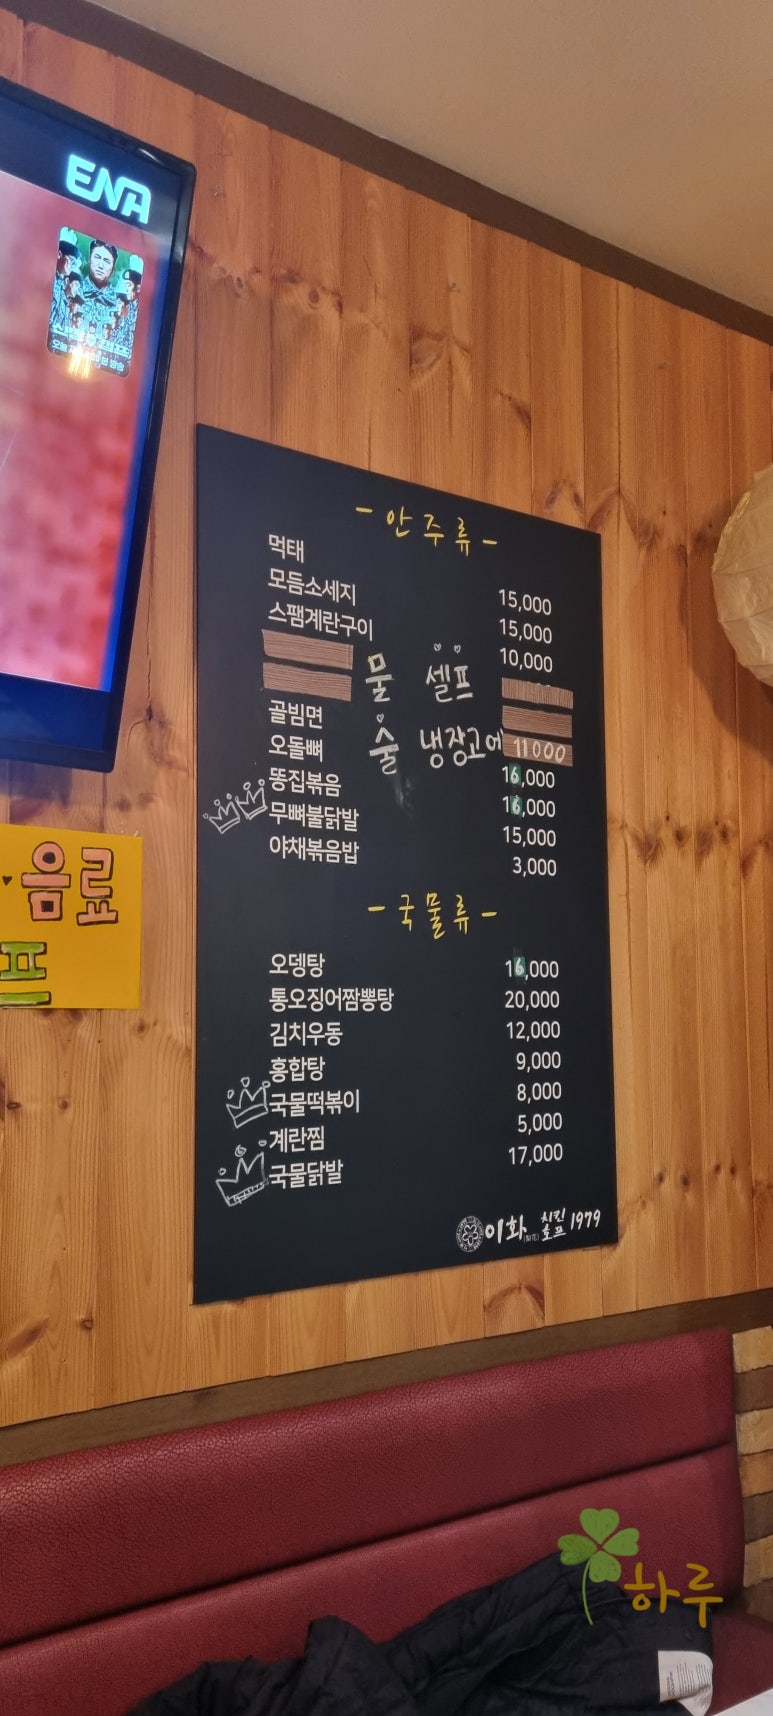 ENA
- 안주류 -
먹태 15,000
모듬소세지 15,000
스팸계란구이 10,000
물 셀프
술 냉장고에
골빔면 11000
오돌뼈 16,000
똥집볶음 16,000
무뼈불닭발 15,000
야채볶음밥 3,000
- 국물류 -
오뎅탕 16,000
통오징어짬뽕탕 20,000
김치우동 12,000
홍합탕 9,000
국물떡볶이 8,000
계란찜 5,000
국물닭발 17,000
이화 치킨 호프 1979
음료
프
하루